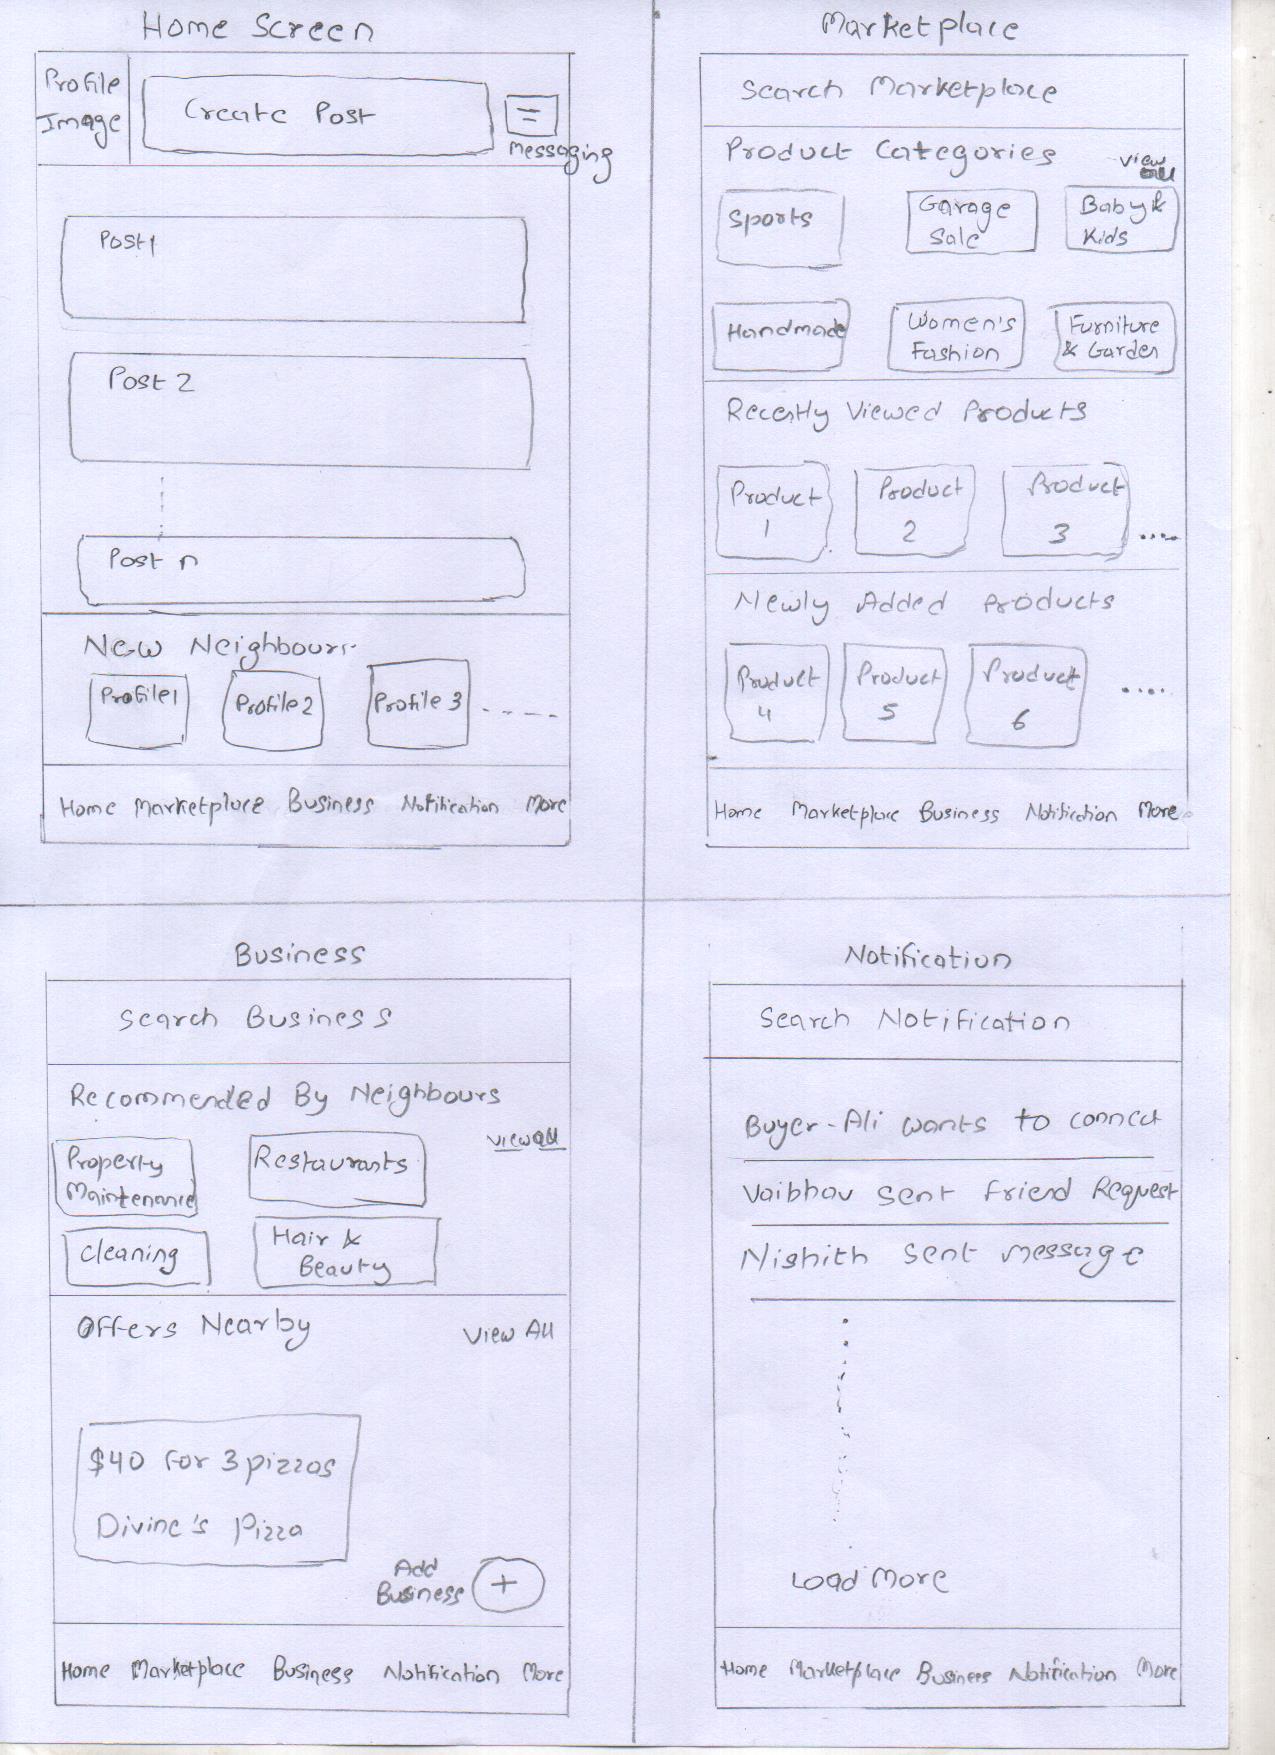 Home Screen
Profile
Image
Create Post
Messaging
Post 1
Post 2
Post n
New Neighbours
Profile 1
Profile 2
Profile 3
Home Marketplace Business Notification More
Marketplace
Search Marketplace
Product Categories
View
all
Sports
Garage
Sale
Baby &
Kids
Handmade
Women's
Fashion
Furniture
& Garden
Recently Viewed Products
Product
1
Product
2
Product
3
Newly Added Products
Product
4
Product
5
Product
6
Home Marketplace Business Notification More
Business
Search Business
Recommended By Neighbours
View all
Property
Maintenance
Restaurants
Cleaning
Hair &
Beauty
Offers Nearby
View All
$40 for 3 pizzas
Divine's Pizza
Add
Business
+
Home Marketplace Business Notification More
Notification
Search Notification
Buyer-Ali wants to connect
Vaibhav sent friend Request
Nishith sent message
Load More
Home Marketplace Business Notification More